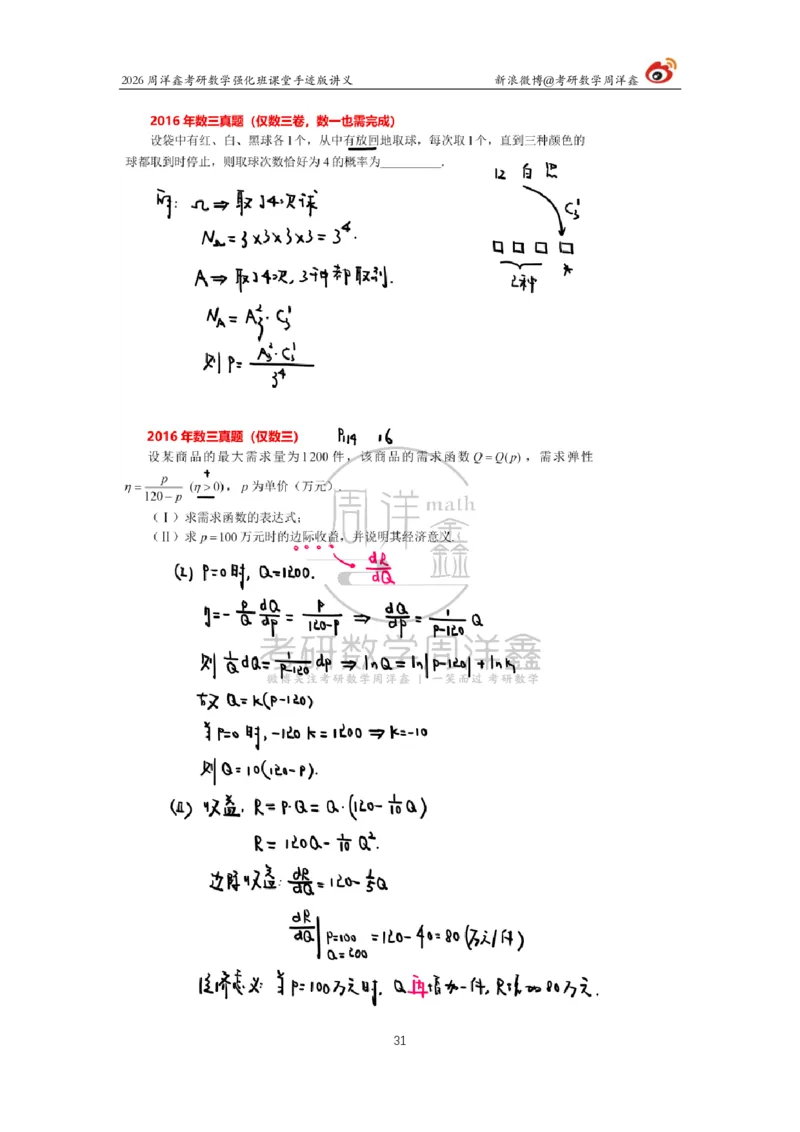 2026周洋鑫考研数学强化班课堂手迹版讲义 新浪微博@考研数学周洋鑫
2016年数三真题（仅数三卷，数一也需完成）
设袋中有红、白、黑球各1个，从中有放回地取球，每次取1个，直到三种颜色的
球都取到时停止，则取球次数恰好为4的概率为________．
红 白 黑
C₃¹
□ □ □ □
2种 *
解：Ω⇒取了4次球
N_Ω=3×3×3×3=3⁴.
A⇒取了4次，3种都取到.
N_A=A₃²·C₃¹
则P=A₃²·C₃¹/3⁴
2016年数三真题（仅数三） P₁₁₄ 16
设某商品的最大需求量为1200件，该商品的需求函数Q=Q(p)，需求弹性
η=p/(120−p) (η>0)，p为单价（万元）.
+
（Ⅰ）求需求函数的表达式；
（Ⅱ）求p=100万元时的边际收益，并说明其经济意义.
dR/dQ
(I) P=0时，Q=1200.
η=-P/Q dQ/dp=P/(120-P) ⇒ dQ/dp=1/(P-120) Q
则 1/Q dQ=1/(P-120) dp ⇒ lnQ=ln|P-120|+lnk
故 Q=k(P-120)
当P=0时，-120k=1200⇒k=-10
则Q=10(120-P).
(II) 收益，R=P·Q=Q·(120-1/10 Q)
R=120Q-1/10 Q².
边际收益：dR/dQ=120-1/5 Q
dR/dQ|P=100 Q=200 =120-40=80(万元/件)
经济意义：当P=100万元时，Q再增加一件，R增加80万元.
周洋鑫 math
考研数学周洋鑫
微博关注考研数学周洋鑫 | 一笑而过 考研数学
31